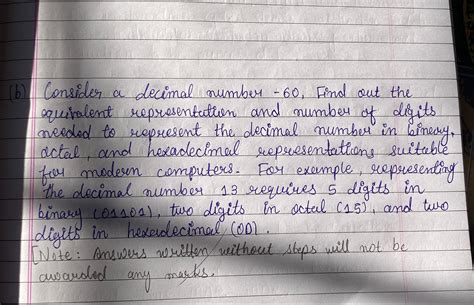 (b) Consider a decimal number -60, Find out the
equivalent representation and number of digits
needed to represent the decimal number in binary,
octal, and hexadecimal representations suitable
for modern computers. For example, representing
the decimal number 13 requires 5 digits in
binary (01101), two digits in octal (15), and two
digits in hexadecimal (0D).
[Note: Answers written without steps will not be
awarded any marks.